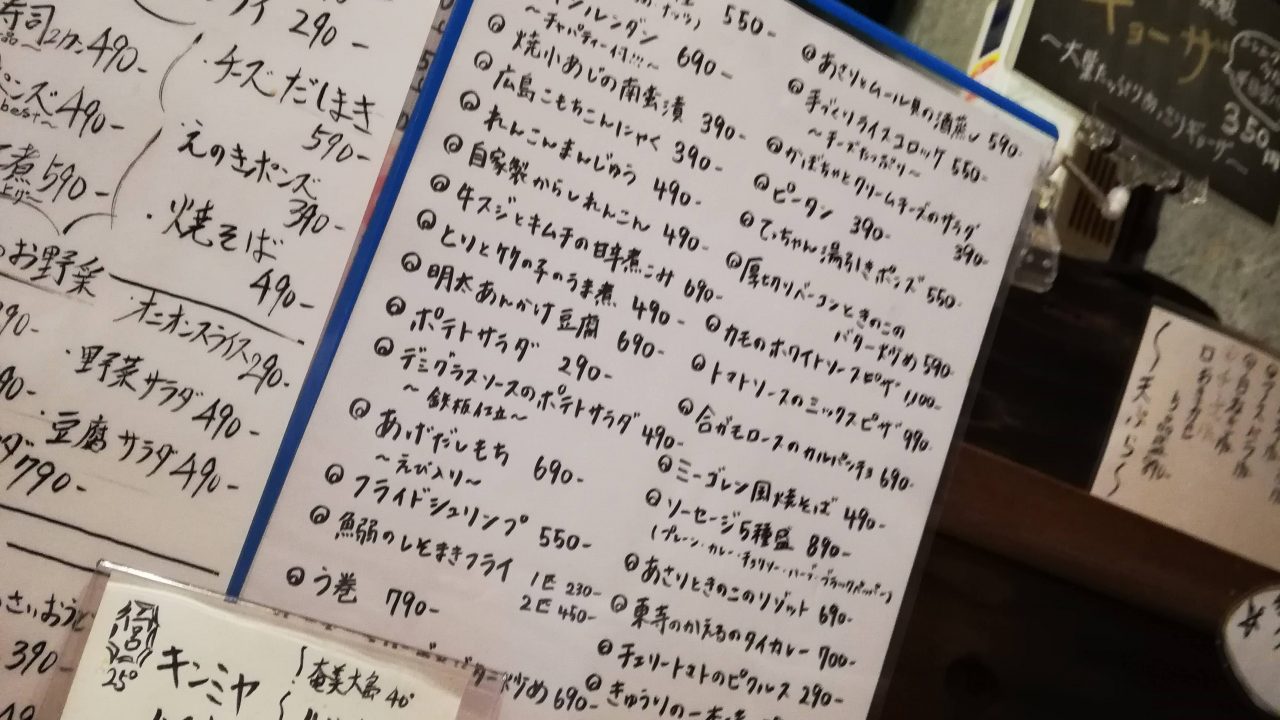 寿司2カン 490-
ポンズ 490-
~best~
煮 590-
290-
・チーズだしまき
590-
・えのきポンズ
390-
・焼そば
490-
お野菜
・オニオンスライス 290-
・野菜サラダ 490-
・豆腐サラダ 490-
790-
390-
25°
キンミヤ
奄美大島 40°
550-
ンルンダン 690-
~チャパティー付!!!~
焼小あじの南蛮漬 390-
広島こもちこんにゃく 390-
れんこんまんじゅう 490-
自家製からしれんこん 490-
牛スジとキムチの甘辛煮こみ 690-
とりとタケの子のうま煮 490-
明太あんかけ豆腐 690-
ポテトサラダ 290-
デミグラスソースのポテトサラダ 490-
~鉄板仕立~
あげだしもち 690-
~えび入り~
フライドシュリンプ 550-
しそまきフライ 1匹 230-
2匹 450-
う巻 790-
炒め 690-
あさりとムール貝の酒蒸し 590-
手づくりライスコロッケ 550-
~チーズたっぷり~
かぼちゃとクリームチーズのサラダ
390-
ピータン 390-
てっちゃん湯引きポンズ 550-
厚切りベーコンときのこの
バター炒め 590-
カモのホワイトソースピザ 1,100-
トマトソースのミックスピザ 990-
合ガモロースのカルパッチョ 690-
ミーゴレン風焼そば 490-
ソーセージ5種盛 890-
(プレーン・カレー・チョリソー・ハーブ・ブラックペッパー)
あさりときのこのリゾット 690-
東寺のかえるのタイカレー 700-
チェリートマトのピクルス 290-
きゅうりの一本漬
ギョーザ
350円
~天ぷら~